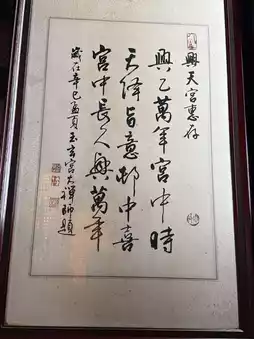 興天宮惠存
興乙萬年宮中時
天降旨意邨中喜
宮中長久興萬年
歲在辛巳孟夏玉宮大禪師題